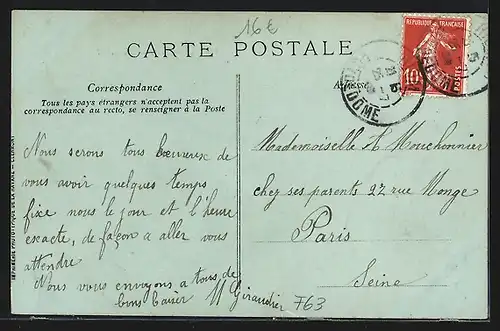 16E
CARTE POSTALE
Correspondance
Tous les pays étrangers n'acceptent pas la
correspondance au recto, se renseigner à la Poste
Nous serons tous heureux de
vous avoir quelques temps
fixe nous le jour et l'heure
exacte, de façon a aller vous
attendre
Nous vous envoyons a tous de
bons baiser M Giraudier
F63
REPUBLIQUE FRANÇAISE
10
POSTES
DOME
Mademoiselle H Mouchonnier
chez ses parents 27 rue Monge
Paris
Seine